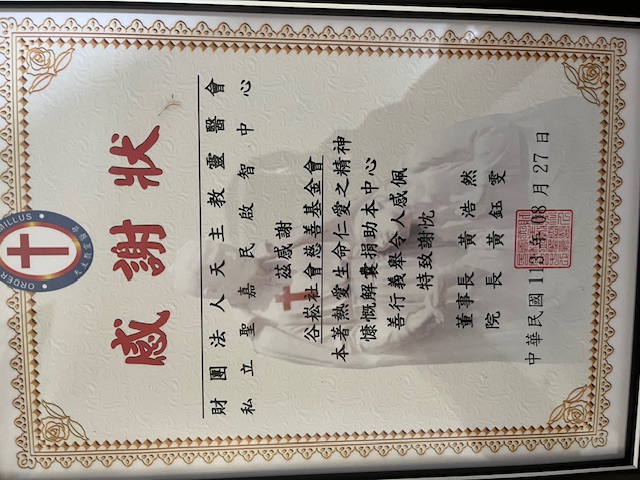 感謝狀
財團法人天主教靈醫會
私立聖嘉民啟智中心
茲感謝
谷崧社會慈善基金會
本著熱愛生命仁愛之精神
慷慨解囊捐助本中心
善行義舉令人感佩
特致謝忱
董事長 黃浩然
院長 黃鈺雯
中華民國113年08月27日
ORDER